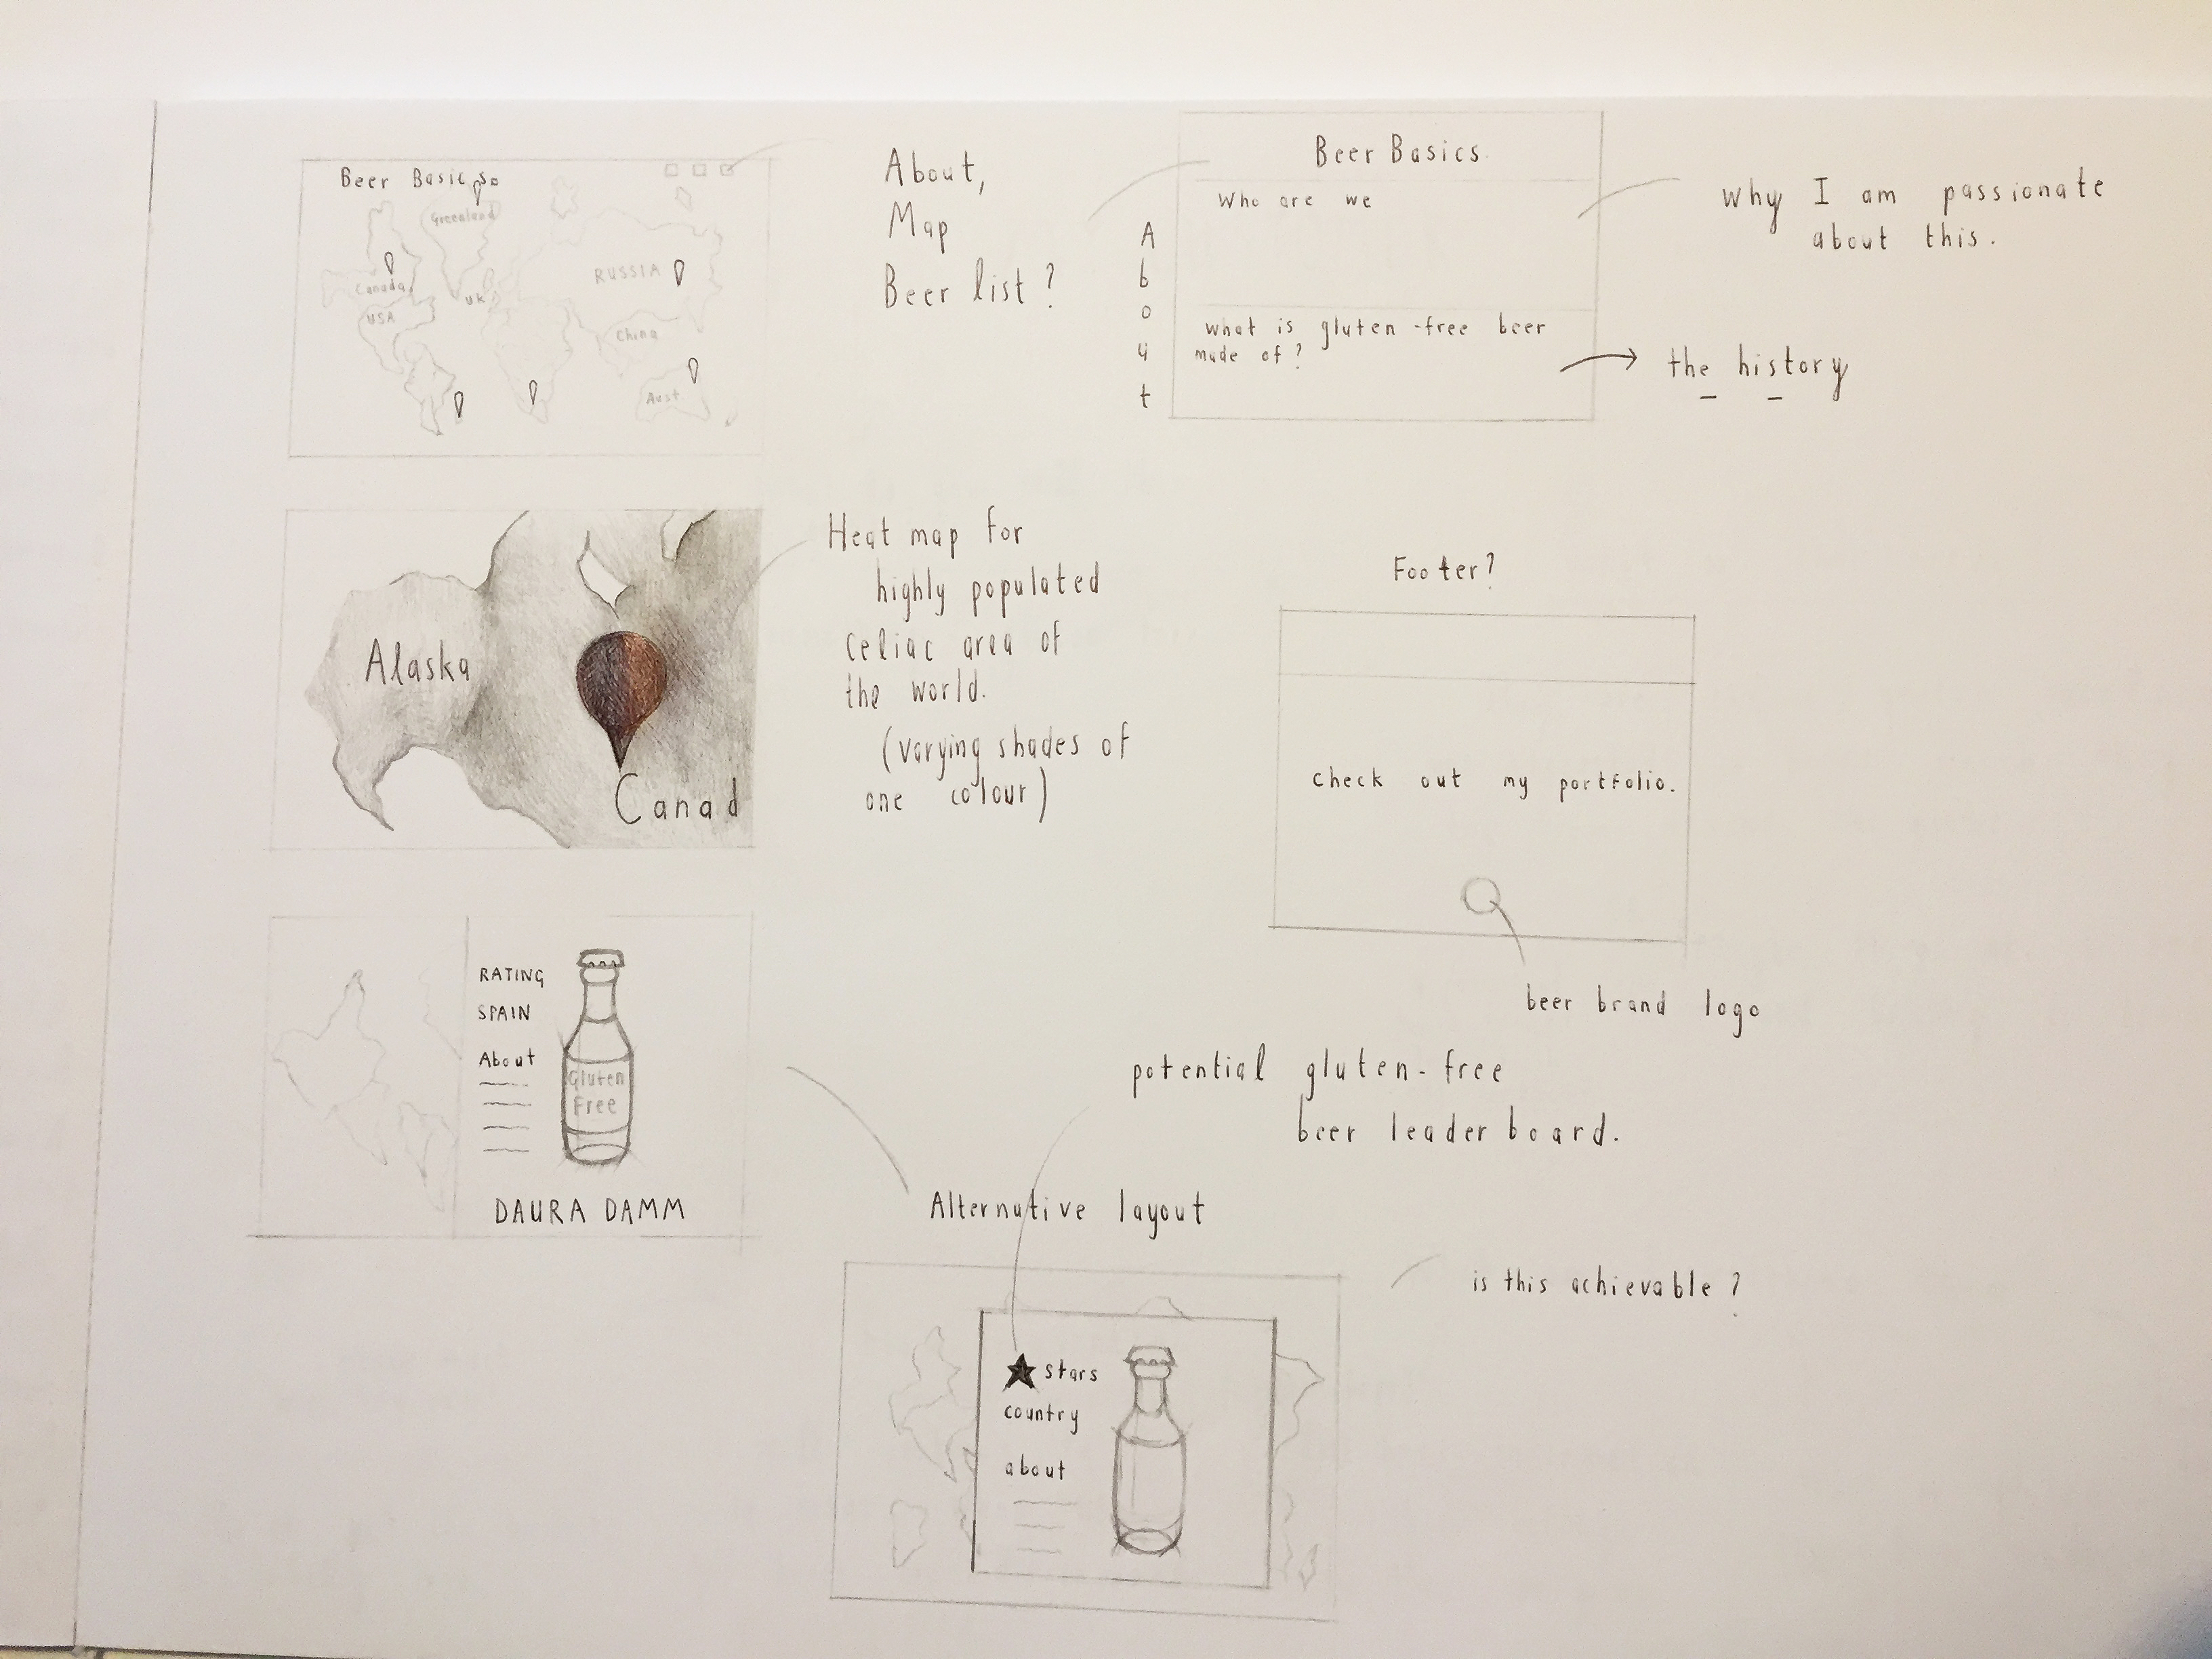 Beer Basics
Greenland
Canada
USA
UK
RUSSIA
China
Aust.
About,
Map
Beer list?
About
Beer Basics.
Who are we
what is gluten-free beer
made of?
why I am passionate
about this.
the history
Alaska
Canad
Heat map for
highly populated
celiac area of
the world.
(varying shades of
one colour)
Footer?
check out my portfolio.
beer brand logo
RATING
SPAIN
About
Gluten
Free
DAURA DAMM
potential gluten-free
beer leader board.
Alternative layout
is this achievable?
stars
country
about